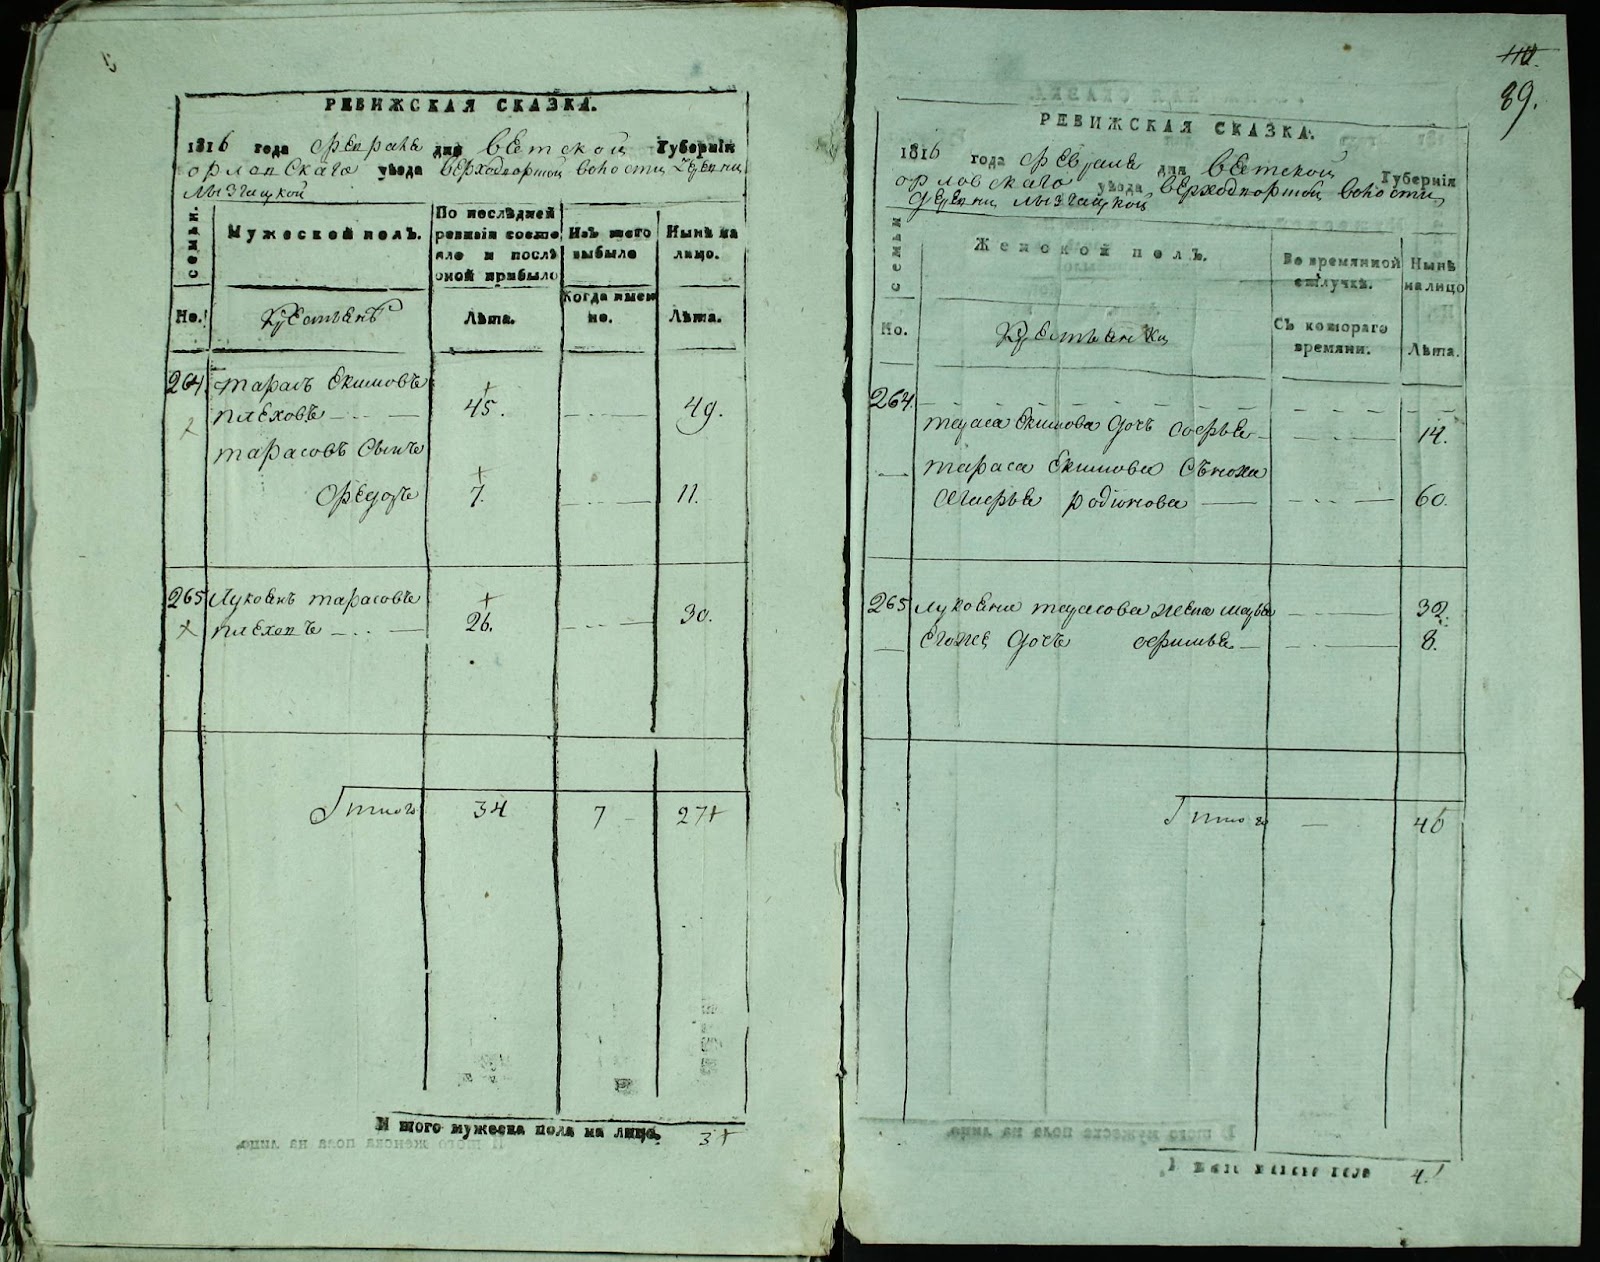 РЕВИЖСКАЯ СКАЗКА.
1816 года Февраля дня Вятской Губернїи
орловскаго уѣзда верходворной волости деревни
лызгацкой
семьи.
Мужеской полъ.
По послѣдней ревизїи состояло и послѣ оной прибыло
Изъ того выбыло
Нынѣ на лицо.
No.
Крестьянъ
Лѣта.
Когда имено.
Лѣта.
264. тарасъ Екимовъ +
плеховъ 45. 49.
тарасовъ Сынъ +
Федоръ 7. 11.
265 Луковнъ тарасовъ +
плеховъ 26. 30.
Итого 34 7 27+
И того мужеска пола на лицо. 3+
110.
89.
РЕВИЖСКАЯ СКАЗКА.
1816 года февраля дня вятской Губернїя
орловскаго уѣзда верходворной волости
деревни лызгацкой
семьи
Женской полъ.
Во времянной отлучкѣ.
Нынѣ на лицо
No.
Крестьянки
Съ котораго времяни.
Лѣта.
264.
тараса Екимова дочь Софья 14.
тараса Екимова Сноха
Агафья родионова 60.
265 луковна тарасова жена 32.
Егоже дочь 8.
Итого 46
И того женска пола 4